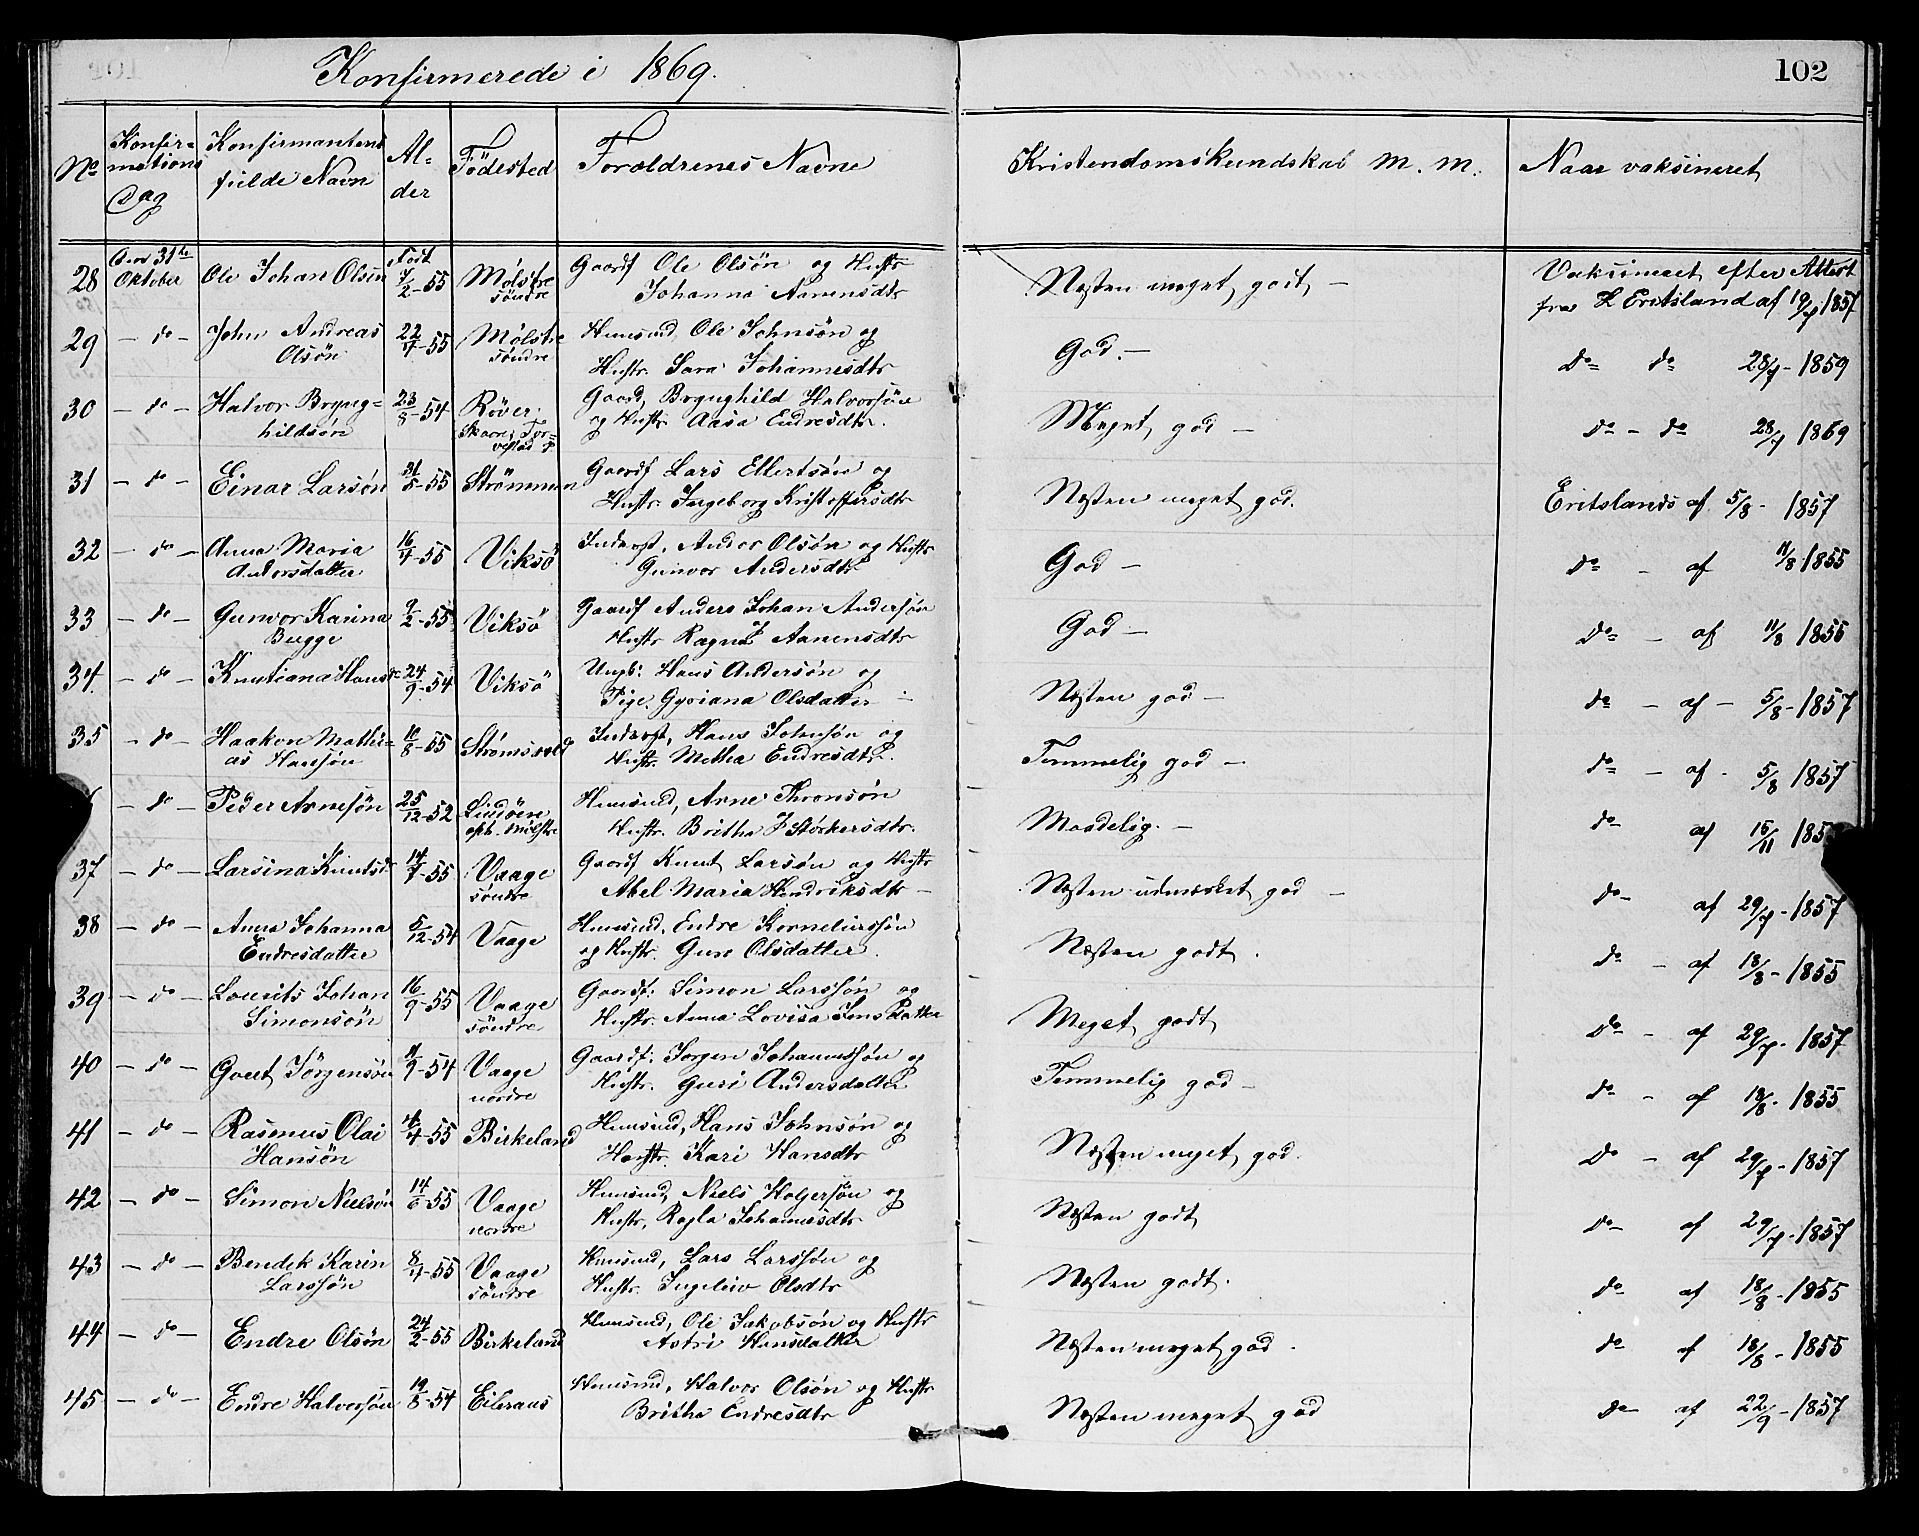 Konfirmerede i 1869.
102
No
Konfir-
mations
Dag
Konfirmantens
fulde Navn
Al-
der
Födested
Foræeldrenes Navne
Kristendomskundskab m. m.
Naar vaksineret
28 Den 31te Oktober Ole Johan Olsen Født 7/2-55 Mölstre söndre Gaardf Ole Olsön og Hustr
Johanna Aanensdtr Næsten meget godt - Vaksineret efter Attest
fra L Eritsland af 19/7 1857
29 - do - John Andreas 22/7-55 Mölstre Huusmd, Ole Johnsön og
Olsön söndre Hustr. Sara Johannesdtr God. - Do do 28/7-1859
30 - do - Halvor Bryng= 23/8-54 Röver Gaard, Brynghild Halvorsön Meget god - do - do 28/7 1869
hildsön Skaare, Tor= og Hustr. Aasa Endresdtr.
vestad P
31 - do - Einar Larsön 31/5-55 Strömmen Gaardf Lars Ellertsön og
Hustr. Ingeborg Kristoffersdtr Næsten meget god. Eritslands af 5/8- 1857
32 - do - Anna Maria 16/7-55 Viksö Inderst, Andor Olsön og Hustr
Andorsdatter Gunvor Andersdtr God - Do - af 11/8 1855
33 - do - Gunvor Karina 9/2-55 Viksö Gaardf Anders Johan Andersön
Bugge Hustr Ragna J Aanensdtr God - Do - af 11/8 1855
34. - do - Knutiana Hansdr 24/9-54 Viksö Ungk: Hans Andersön og
Pige. Gyriana Olsdatter - Næsten god - do - af - 5/8-1857
35 - do - Haakon Mathi= 10/8-55 Strömsvold Inderst, Hans Johnsön og
as Hansön Hustr. Metha Endresdtr. Temmelig god - do - af - 5/8 1857
- do - Peder Arnesön 25/12-52 Lindöen Huusmd, Arne Thronsön
oph. Mölstre Hustr. Britha J Störkersdtr. Maadelig. - do af 15/11 185
37 - do - Larsina Knutsdr 14/7-55 Vaage Gaardf Knut Larsön og Hustr
söndre Abel Maria Hendriksdtr - Næsten udmærket god - do- af 29/7-1857
38 - do - Anna Johanna 5/12-54 Vaage Huusmd, Endre Korneliussön
Endresdatter og Hustr. Guro Olsdatter. Næsten godt. do - af 18/8-1855
39 - do - Lourits Johan 16/9-55 Vaage Gaardf: Simon Larssön og
Simonsön söndre Hustr. Anna Lovisa Jens Datter Meget godt Do - af 29/7-1857
40 - do - Govert Jörgensön 11/9-54 Vaage Gaardf: Jorgen Johannessön og
nordre Hustr. Guri Andersdatter Temmelig god - do - af 18/8- 1855
41 - do - Rasmus Olai 14/4-55 Birkeland Huusmd, Hans Johnsön og
Hansön Hustr. Kari Hansdtr Næsten meget god. Do - af 29/7-1857
42 - do - Simon Nielsön 14/6-55 Vaage Huusmd, Niels Holgersön og
nordre Hustr, Ragla Johannesdtr Næsten godt do- af 29/7-1857
43 - do - Bendik Karin 8/4-55 Vaage Huusmd, Lars Larssön og
Larssön söndre Hustr. Ingeleiv Olsdtr Næsten godt. do- af 18/8-1855
44 - do - Endre Olsön 24/2-55 Birkeland Huusmd, Ole Jakobsön og Hustr
Astri Hansdatter Næsten meget god. do- af 18/8-1855
45 - do - Endre Halvorsön 19/8-54 Eileraas Huusmd, Halvor Olsön og Hustr
Britha Endresdtr Næsten meget god do- af 22/9-1857